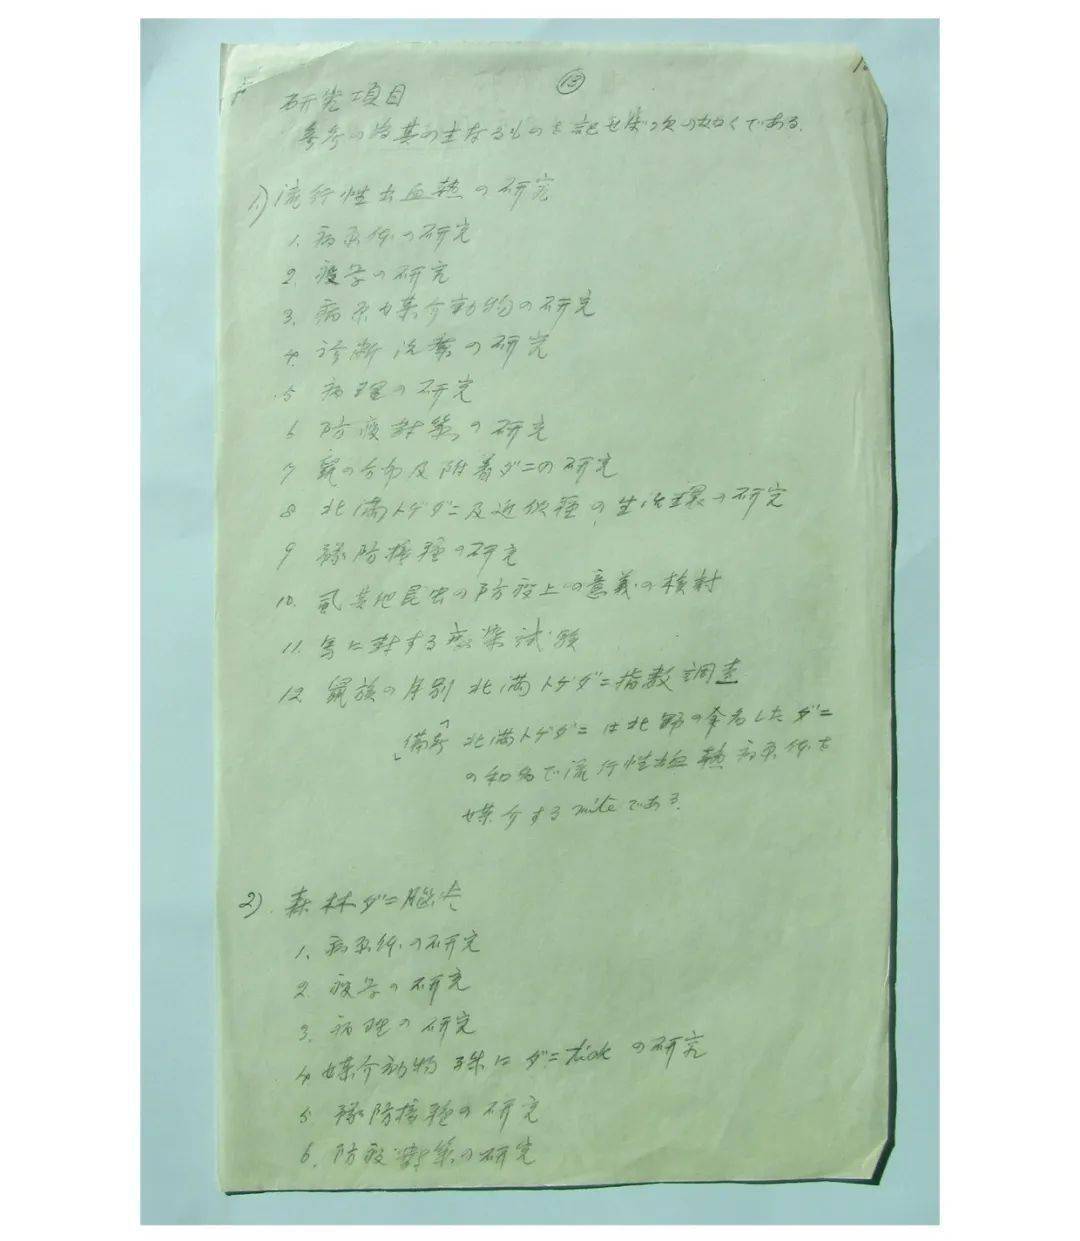 ⑬
研究項目
参考の為其の主なるものを記せば次の如くである.
1) 流行性出血熱の研究
1. 病原体の研究
2. 疫学の研究
3. 病原媒介動物の研究
4. 診断治療の研究
5 病理の研究
6 防疫対策の研究
7 鼠の分布及附着ダニの研究
8 北満トゲダニ及近似種の生活環の研究
9 豫防接種の研究
10. 虱其他昆虫の防疫上の意義の検討
11. 馬に対する感染試験
12 鼠族の月別北満トゲダニ指数調査
「備考」 北満トゲダニは北野の命名したダニ
の和名で流行性出血熱病原体を
媒介するmiteである.
2) 森林ダニ脳炎
1. 病原体の研究
2. 疫学の研究
3. 病理の研究
4 媒介動物 殊にダニ tick の研究
5 豫防接種の研究
6. 防疫対策の研究